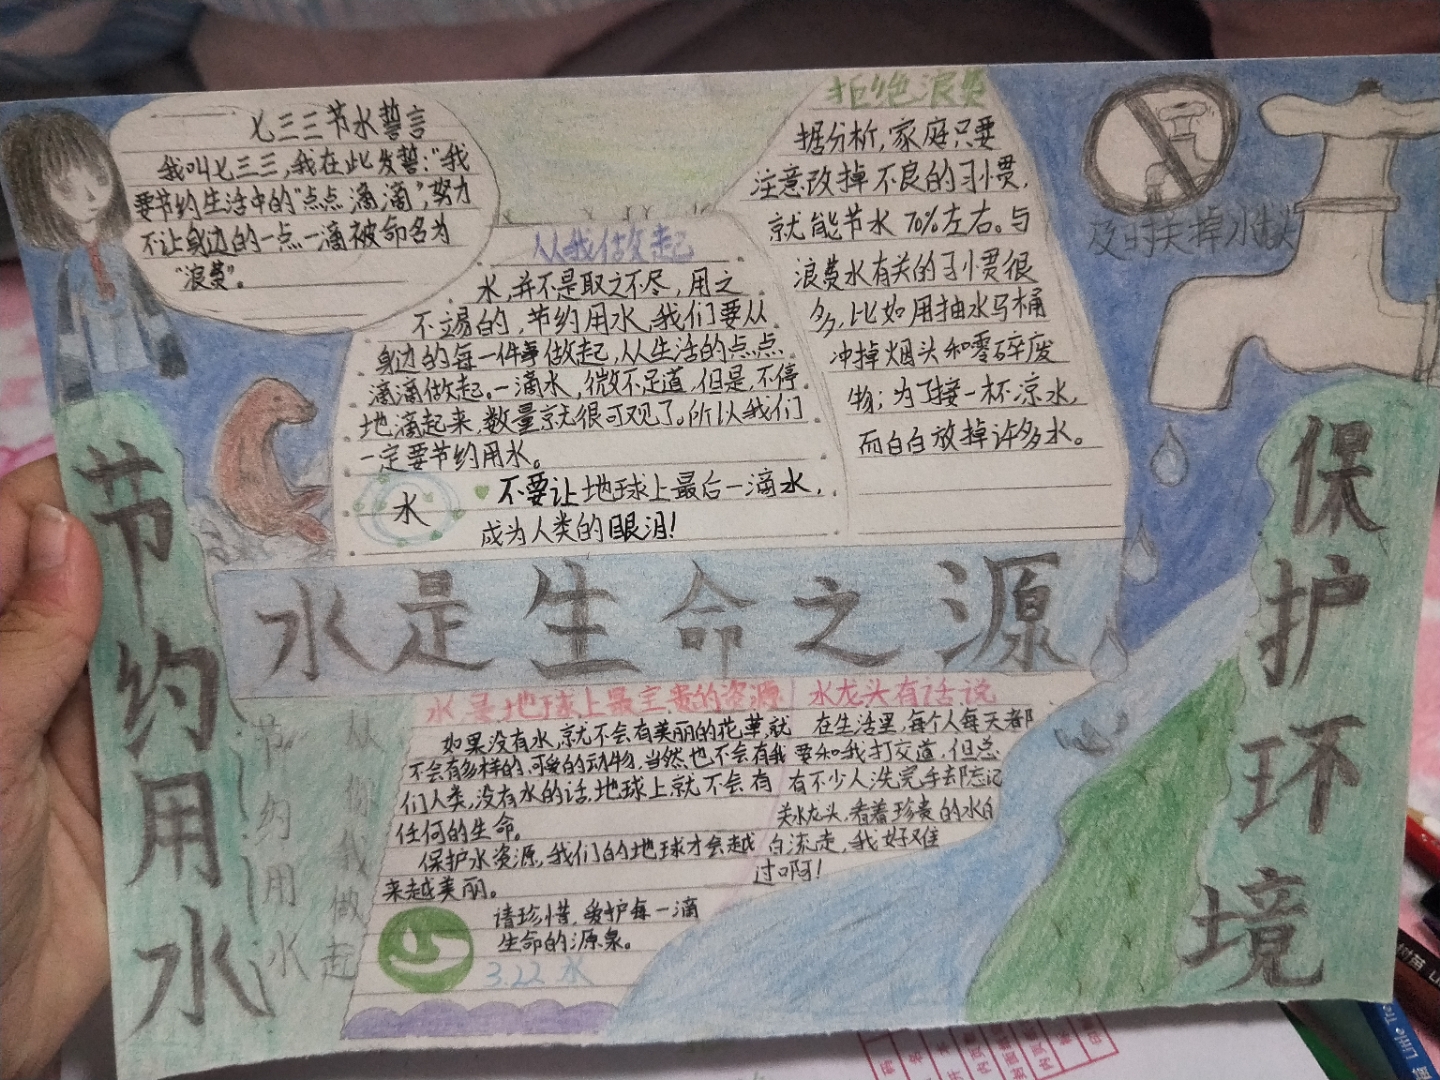 七三三节水誓言
我叫七三三,我在此发誓:“我
要节约生活中的“点点滴滴”,努力
不让身边的一点一滴被命名为
“浪费”。
从我做起
水,并不是取之不尽,用之
不竭的,节约用水,我们要从
身边的每一件事做起,从生活的点点
滴滴做起。一滴水,微不足道,但是,不停
地滴起来,数量就很可观了。所以我们
一定要节约用水。
水
不要让地球上最后一滴水,
成为人类的眼泪!
拒绝浪费
据分析,家庭只要
注意改掉不良的习惯,
就能节水70%左右。与
浪费水有关的习惯很
多,比如用抽水马桶
冲掉烟头和零碎废
物;为了接一杯凉水,
而白白放掉许多水。
及时关掉水
节约用水
保护环境
水是生命之源
节约用水
从你我做起
水是地球上最宝贵的资源
如果没有水,就不会有美丽的花草,就
不会有多样的、可爱的动物,当然也不会有我
们人类,没有水的话,地球上就不会有
任何的生命。
保护水资源,我们的地球才会越
来越美丽。
请珍惜,爱护每一滴
生命的源泉。
3.22 水
水龙头有话说
在生活里,每个人每天都
要和我打交道,但总
有不少人洗完手却忘记
关水龙头,看着珍贵的水白
白流走,我好难
过啊!